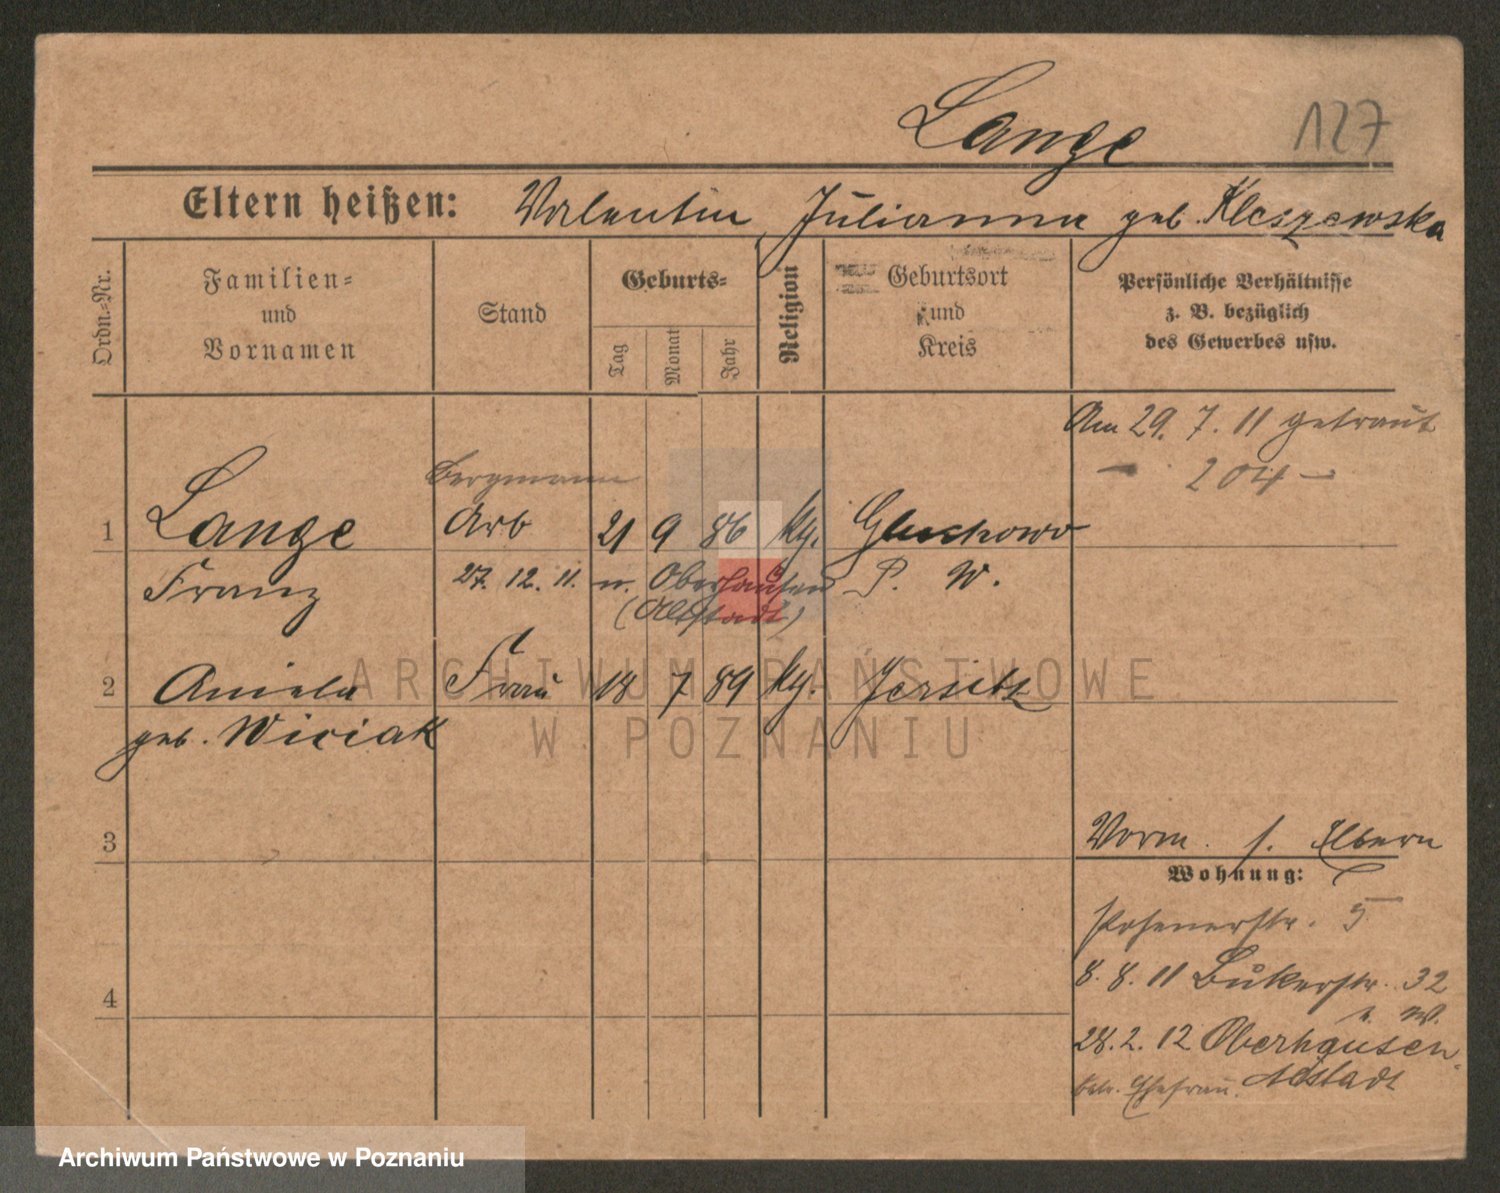 Lange 127
Eltern heißen: Valentin, Julianna geb. Kleszewska
Ordn.-Nr.
Familien- und Vornamen
Stand
Geburts-
Tag
Monat
Jahr
Religion
Geburtsort und Kreis
Persönliche Verhältnisse
z. B. bezüglich
des Gewerbes usw.
Am 29. 7. 11 getraut
– 204 –
Bergmann
1 Lange Arb 21 9 86 kth. Gluchowo
Franz 27. 12. 11. n. Oberhausen P. W.
(Altstadt)
2 Aniela Frau 18 7 89 kth. Jersitz
geb. Wiciak
3
Vorm. s. Eltern
Wohnung:
Posenerstr. 5
8. 8. 11 Bukerstr. 32
4
28. 2. 12 Oberhausen
Altstadt
Ehefrau.
ARCHIWUM PAŃSTWOWE
W POZNANIU
Archiwum Państwowe w Poznaniu